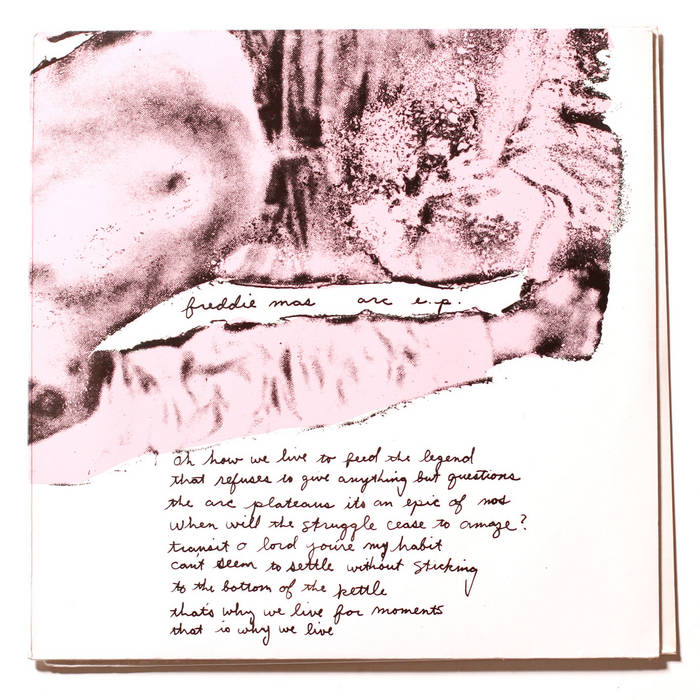 freddie mas arc e.p.
oh how we live to feed the legend
that refuses to give anything but questions
the arc plateaus its an epic of nos
when will the struggle cease to amaze?
transit o lord you're my habit
can't seem to settle without sticking
to the bottom of the kettle
that's why we live for moments
that is why we live